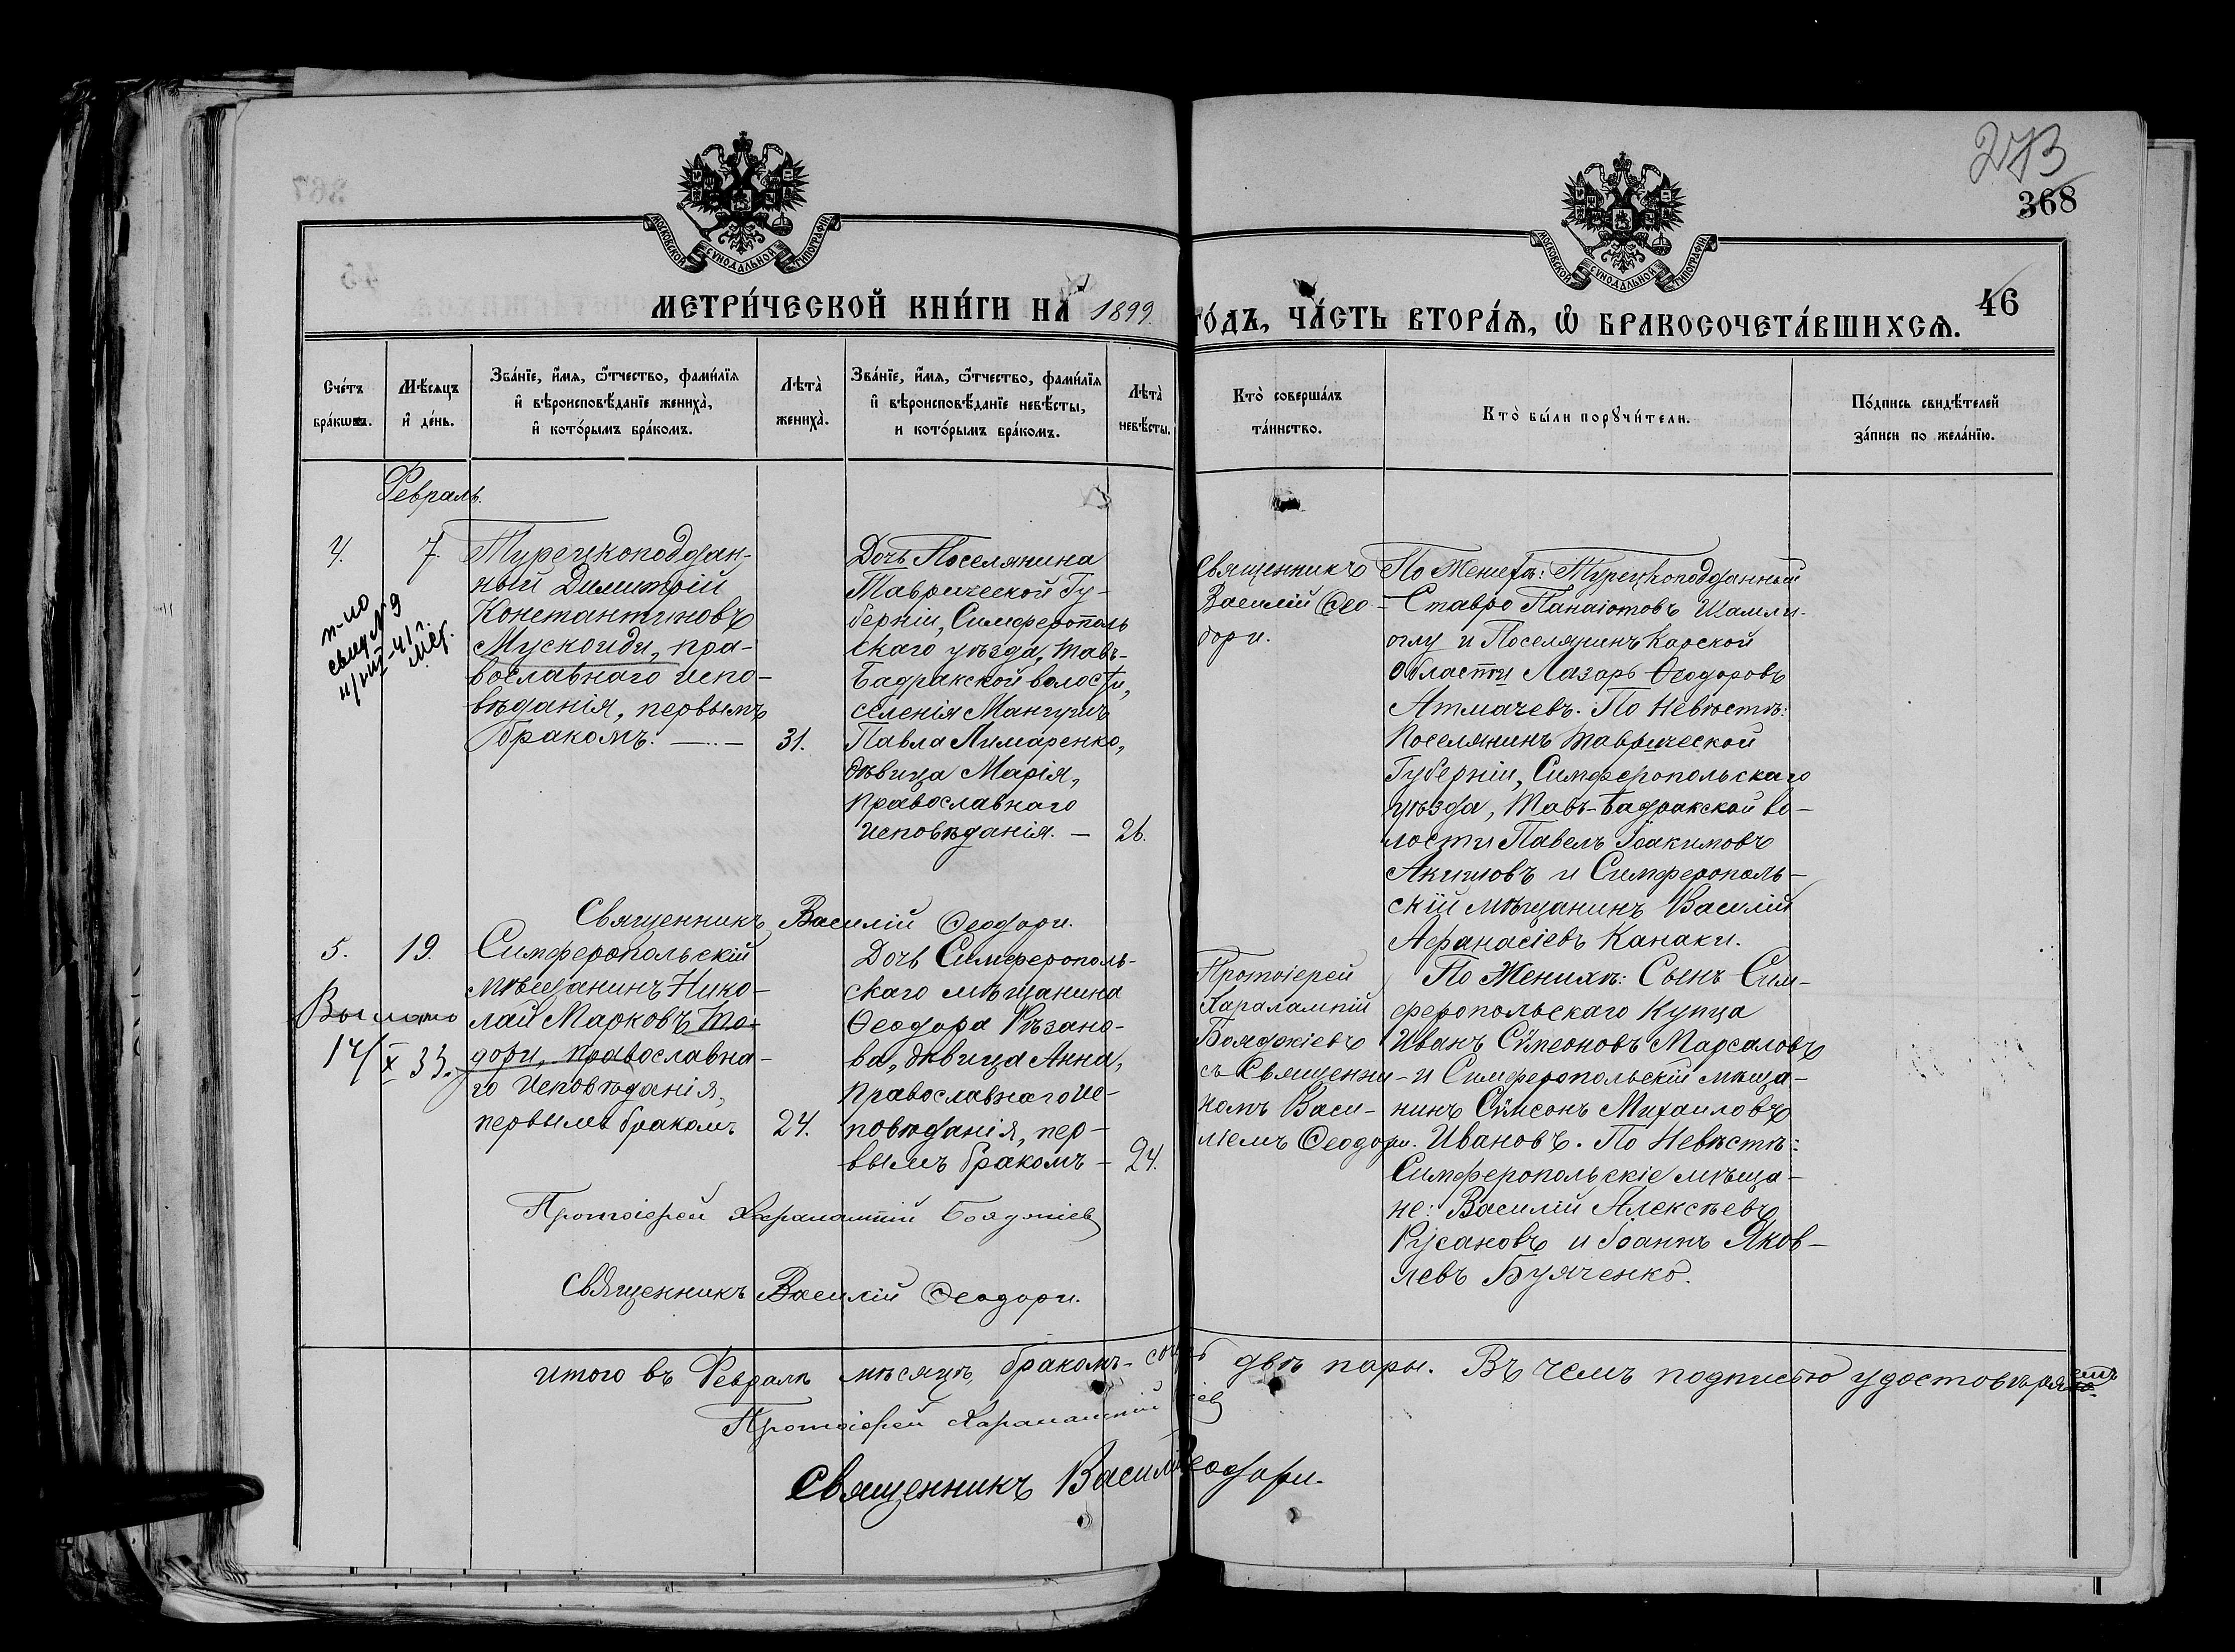 273
368
46
МОСКОВСКОЙ СѴНОДАЛЬНОЙ ТИПОГРАФІИ
МОСКОВСКОЙ СѴНОДАЛЬНОЙ ТИПОГРАФІИ
МЕТРИ́ЧЕСКОЙ КНИ́ГИ НА 1899.
ГО́ДЪ, ЧА́СТЬ ВТОРА́Я, Ѡ БРАКОСОЧЕТА́ВШИХСЯ.
Сче́тъ бра́кωвъ.
Мѣ́сяцъ и҆ де́нь.
Зва́нїе, и҆́мя, ѻ҆́тчество, фами́лїя
и҆ вѣроисповѣ́данїе жениха̀,
и҆ кото́рымъ бра́комъ.
Лѣта̀ жениха̀.
Зва́нїе, и҆́мя, ѻ҆́тчество, фами́лїя
и҆ вѣроисповѣ́данїе невѣ́сты,
и кото́рымъ бра́комъ.
Лѣта̀ невѣ́сты.
Кто̀ соверша́лъ
та́инство.
Кто̀ бы́ли порꙋчи́тели.
По́дпись свидѣ́телей
за́писи по жела́нїю.
Февраль.
4.
7.
п-но
свид № 9
11/VIII-41 г.
Турецкоподдан-
ный Димитрій
Константиновъ
Мускоиди, пра-
вославнаго испо-
вѣданія, первымъ
бракомъ. —
31.
Дочь Поселянина
Таврической Гу-
берніи, Симферополь
скаго уѣзда, Тавъ-
Бадракской волости,
селенія Мангушъ
Павла Лимаренко,
дѣвица Марія,
православнаго
исповѣданія. —
26.
Священникъ
Василій Ѳео-
дори.
По Женихѣ: Турецкоподданный
Ставро Панаіотовъ Шамли-
оглу и Поселянинъ Карской
области Лазарь Ѳеодоровъ
Атмачевъ. По Невѣстѣ:
Поселянинъ Таврической
Губерніи, Симферопольскаго
уѣзда, Тавъ-Бадракской во-
лости Павелъ Іоакимовъ
Акимовъ и Симферополь-
скій мѣщанинъ Василій
Аѳанасіевъ Канаки.
Священникъ Василій Ѳеодори.
5.
19.
17/X 33.
Симферопольскій
мѣщанинъ Нико-
лай Марковъ То-
дори, православна-
го исповѣданія,
первымъ бракомъ
24.
Дочь Симферополь-
скаго мѣщанина
Ѳеодора Рѣзано-
ва, дѣвица Анна,
православнаго ис-
повѣданія, пер-
вымъ бракомъ —
24.
Протоіерей
Харалампій
Бояджіевъ
съ Священни-
комъ Васи-
ліемъ Ѳеодори.
По Женихѣ: Сынъ Сим-
феропольскаго Купца
Иванъ Сѵмеоновъ Марсаловъ
и Симферопольскій мѣща-
нинъ Сѵмеонъ Михаиловъ
Ивановъ. По Невѣстѣ:
Симферопольскіе мѣща-
не: Василій Алексѣевъ
Русановъ и Іоаннъ Яков-
левъ Буяченко.
Протоіерей Харалампій Бояджіевъ
Священникъ Василій Ѳеодори.
Итого въ Февралѣ мѣсяцѣ бракомъ двѣ пары. Въ чемъ подписью удостовѣряемъ
Протоіерей Харалампій
Священникъ Василій Ѳеодори.